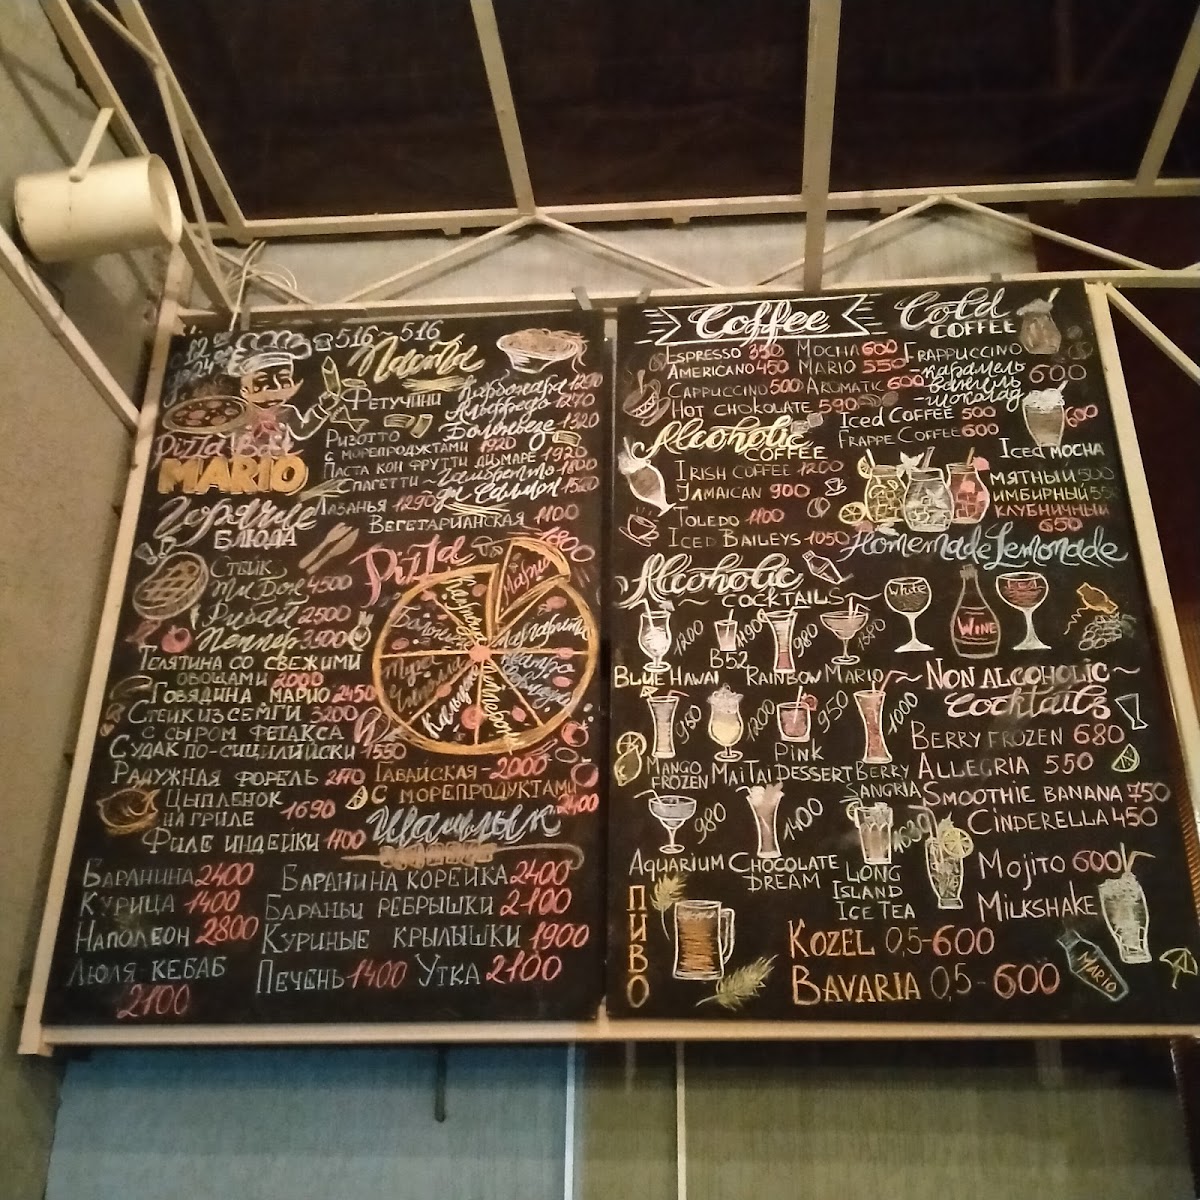 516-516
Паста
Фетучини Карбонара 1290
Альфредо 1270
Болоньезе 1320
Ризотто
с морепродуктами 1920
Паста кон фрутти ди маре 1920
Спагетти ~ Гамбретто 1800
ди Салмон 1520
Лазанья 1290
Вегетарианская 1100
Pizza Bar
MARIO
Горячие
блюда
Стейк
Ти Бон 4500
Рибай 2500
Пеппер
Телятина со свежими
овощами 2000
Говядина Марио 2450
Стейк из семги 3200
с сыром фетакса
Судак по-сицилийски 1550
Радужная форель
Цыпленок
на гриле 1690
Филе индейки 1100
Pizza
Марио
Маргарита
Гавайская - 2000
с морепродуктами
2400
Шашлык
Баранина 2400
Баранина корейка 2400
Курица 1400
Бараньи ребрышки 2100
Наполеон 2800
Куриные крылышки 1900
Люля-кебаб
2100
Печень 1400 Утка 2100
Coffee
Espresso 350 Mocha 600
Americano 450 Mario 550
Cappuccino 500 Aromatic 600
Hot chokolate 590
Cold
coffee
Frappuccino
- карамель
- ваниль
- шоколад
600
Iced Coffee 500
Frappe Coffee 600
600
Iced mocha
Alcoholic
coffee
Irish coffee 1200
Jamaican 900
Toledo 1100
Iced Baileys 1050
мятный 500
имбирный
клубничный
650
Homemade Lemonade
Alcoholic
~ cocktails ~
1200
980
Blue Hawai
B52
Rainbow
Mario
White
Wine
Red
950
1200
950
1000
Mango
frozen
Mai Tai
Pink
Dessert
Berry
Sangria
980
1400
1630
Aquarium
Chocolate
Dream
Long
Island
Ice Tea
~ Non alcoholic ~
Cocktails
Berry frozen 680
Allegria 550
Smoothie banana 750
Cinderella 450
Mojito 600
Milkshake
Пиво
Kozel 0,5-600
Bavaria 0,5-600
Mario